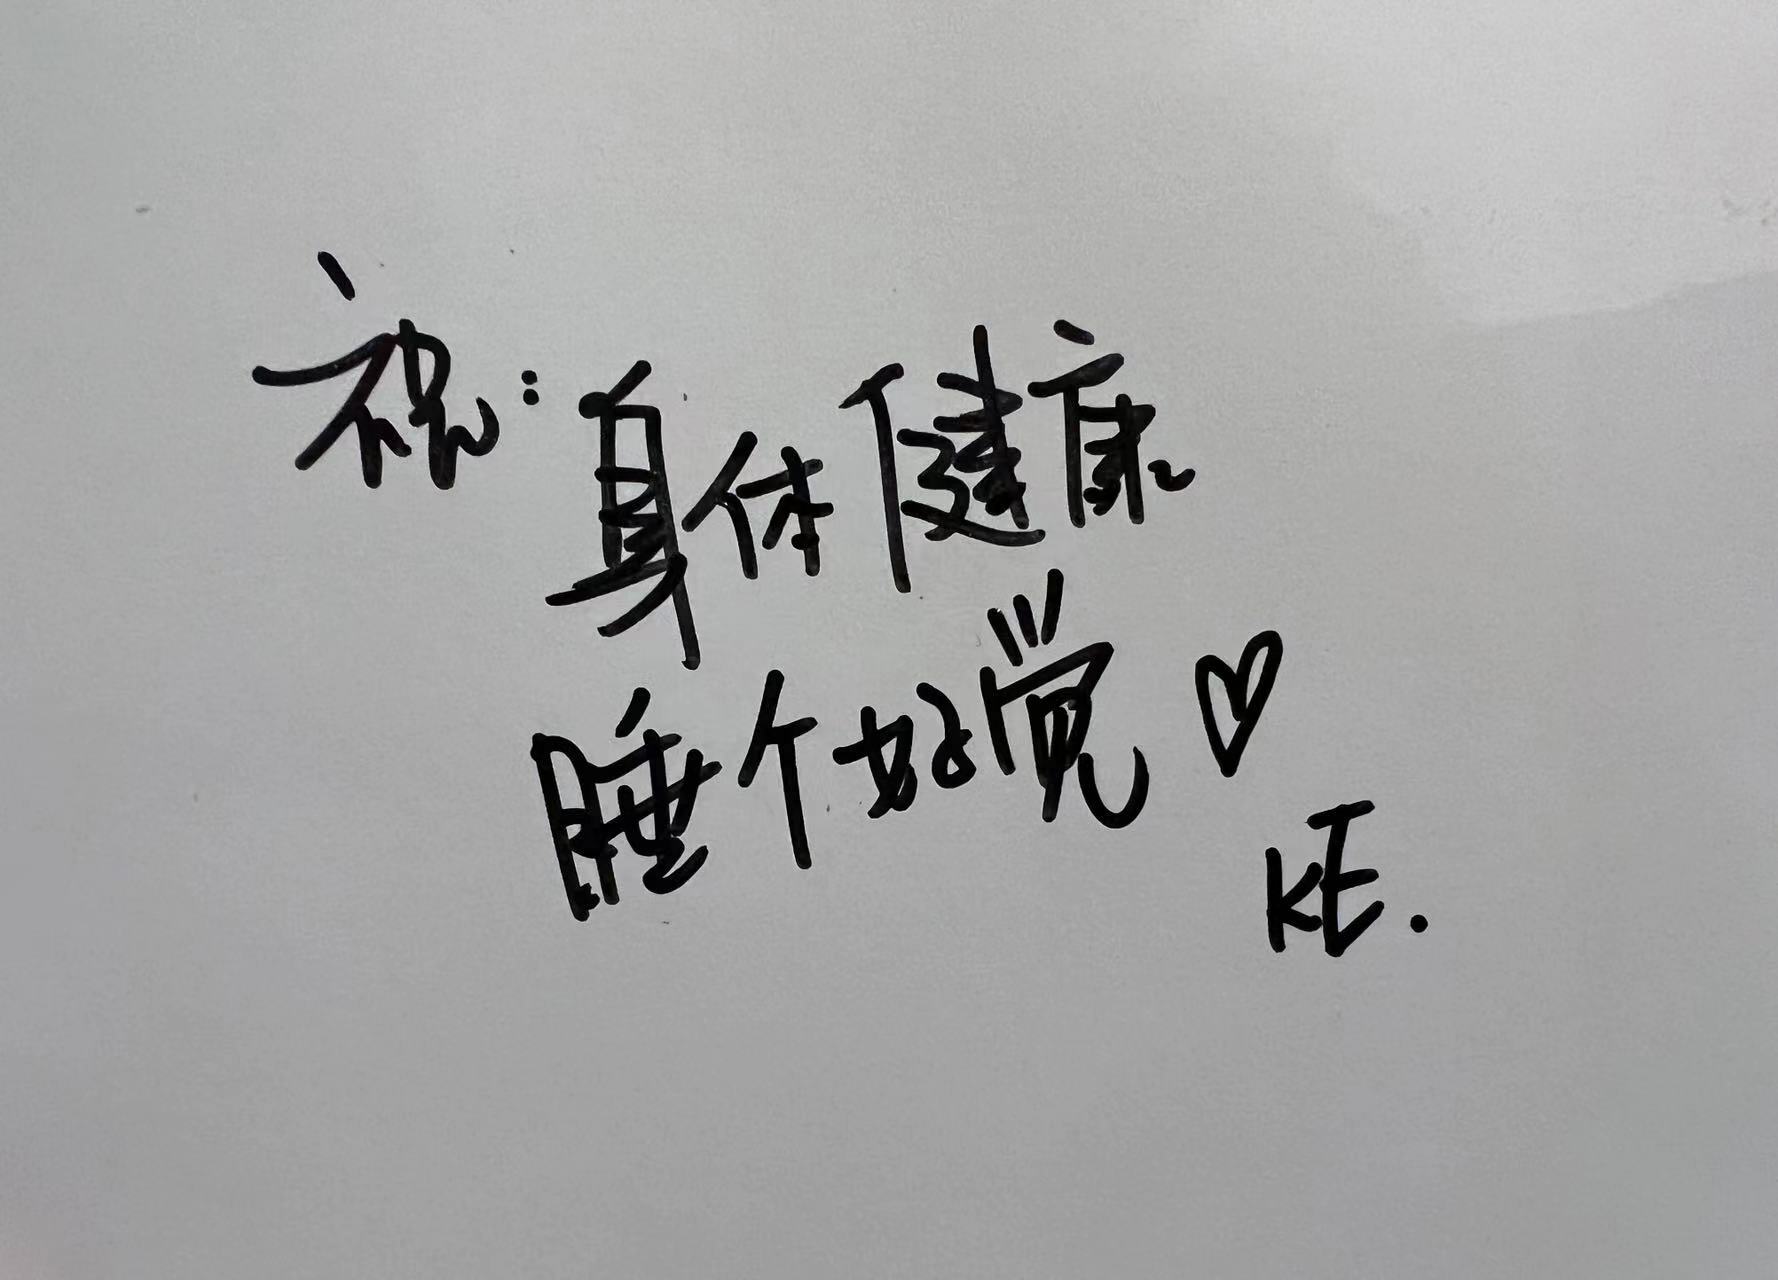 祝：身体健康
睡个好觉♡
KE.